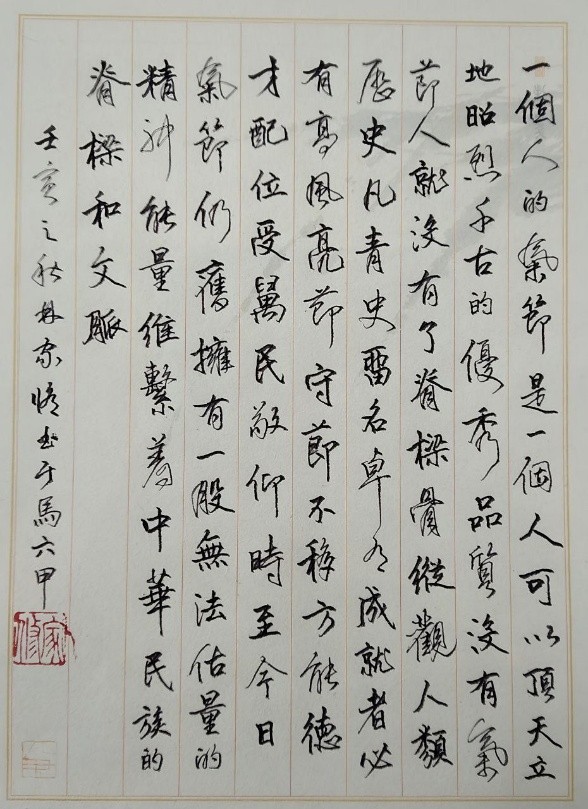 一個人的氣節是一個人可以頂天立
地昭烈千古的優秀品質沒有氣
節人就沒有了脊樑骨縱觀人類
歷史凡青史畱名卓有成就者必
有高風亮節守節不移方能德
才配位受萬民敬仰時至今日
氣節仍舊擁有一股無法估量的
精神能量維繫着中華民族的
脊樑和文脈
壬寅之秋林家修書于馬六甲
家修